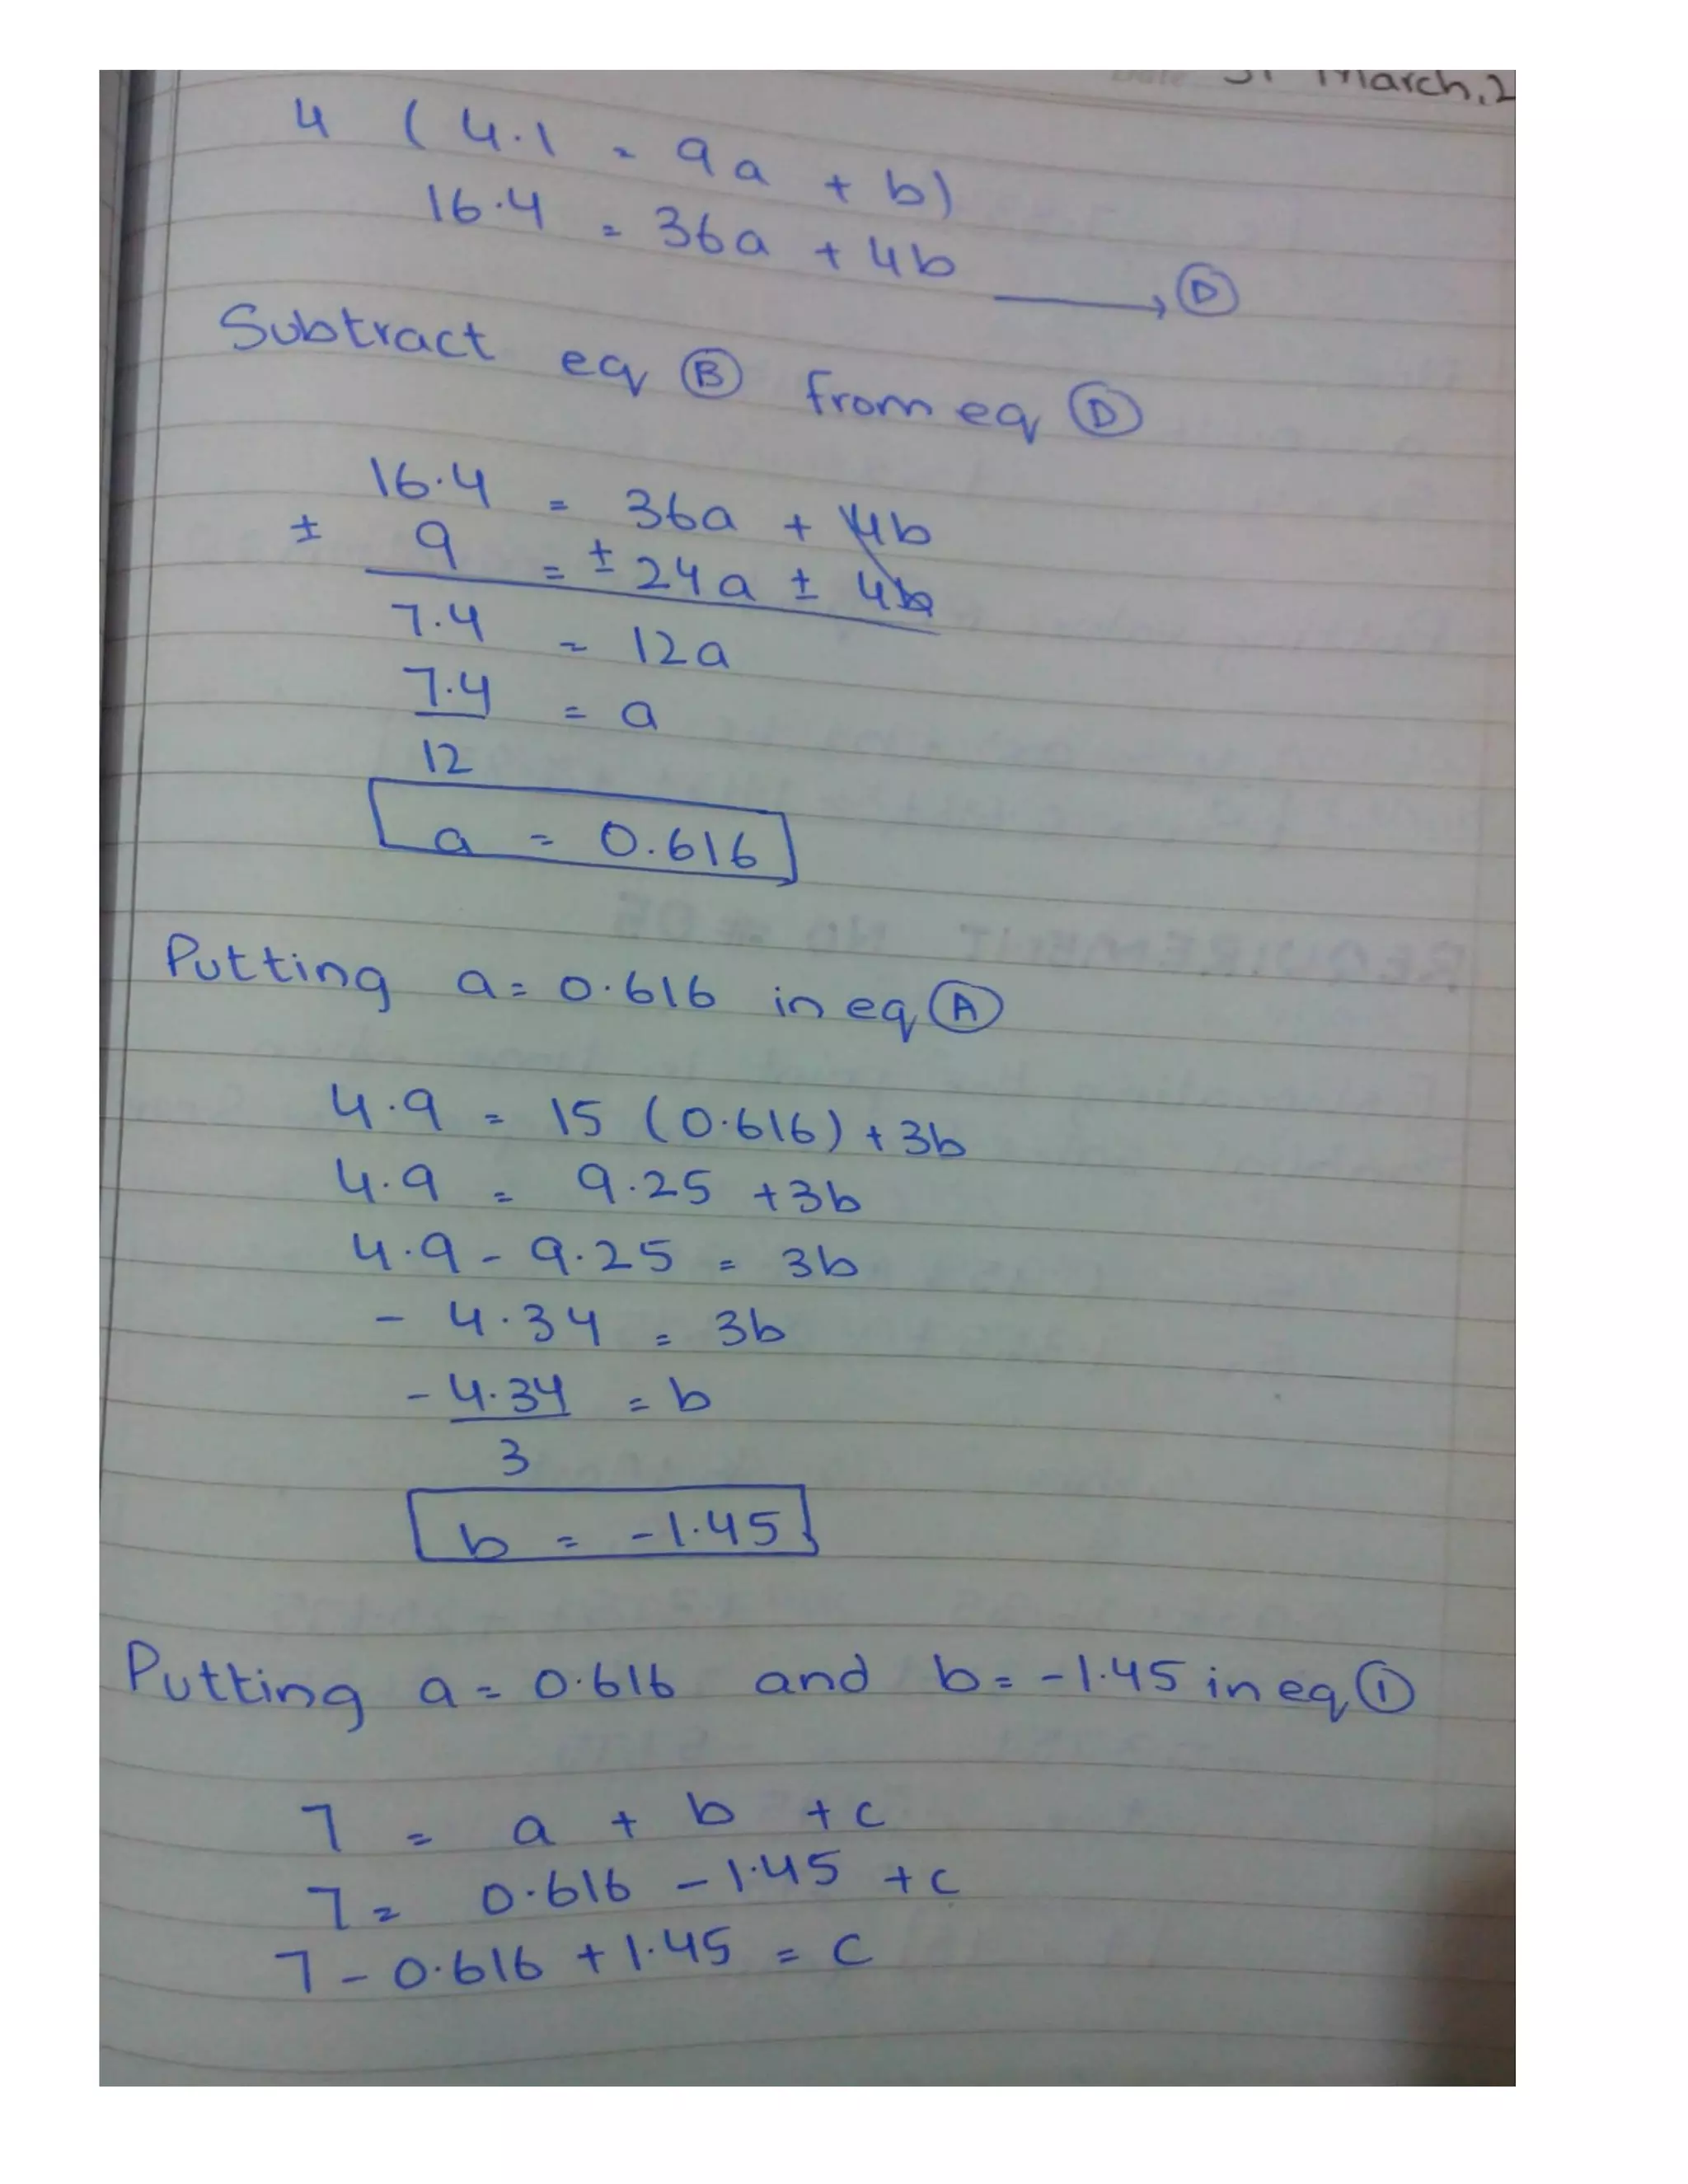 March, 2
4 ( 4.1 = 9a + b)
16.4 = 36a + 4b ⟶ Ⓓ
Subtract eq Ⓑ from eq Ⓓ
16.4 = 36a + 4b
± 9 = ± 24a ± 4b
7.4 = 12a
7.4 = a
12
a = 0.616
Putting a = 0.616 in eq Ⓐ
4.9 = 15 (0.616) + 3b
4.9 = 9.25 + 3b
4.9 - 9.25 = 3b
- 4.34 = 3b
- 4.34 = b
3
b = -1.45
Putting a = 0.616 and b = -1.45 in eq ①
7 = a + b + c
7 = 0.616 - 1.45 + c
7 - 0.616 + 1.45 = c